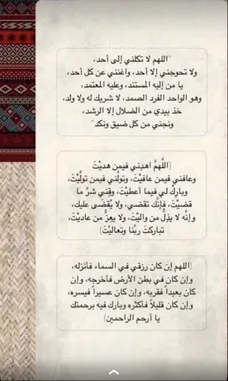 "اللهم لا تكلني إلى أحد،
ولا تحوجني إلا أحد، واغنني عن كل أحد،
يا من إليه المستند، وعليه المعتمد،
وهو الواحد الفرد الصمد، لا شريك له ولا ولد،
خذ بيدي من الضلال إلا الرشد،
ونجني من كل ضيق ونكد"
(اللَّهمَّ اهدِني فيمن هديْتَ
وعافني فيمن عافيْتَ، وتولَّني فيمن تولَّيْتَ،
وبارِكْ لي فيما أعطَيْتَ، وقِني شرَّ ما
قضيْتَ، فإنك تقضي، ولا يُقضَى عليك،
وإنَّه لا يذِلُّ من والَيْتَ، ولا يعِزُّ من عاديْتَ،
تباركتَ ربَّنا وتعالَيْتَ)
(اللهم إن كان رزقي في السماء فأنزله،
وإن كان في بطن الأرض فأخرجه، وإن
كان بعيداً فقربه، وإن كان عسيراً فيسره،
وإن كان قليلاً فأكثره وبارك فيه برحمتك
يا أرحم الراحمين)